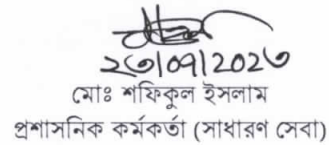 ২৩|০৭|২০২৩
মোঃ শফিকুল ইসলাম
প্রশাসনিক কর্মকর্তা (সাধারণ সেবা)